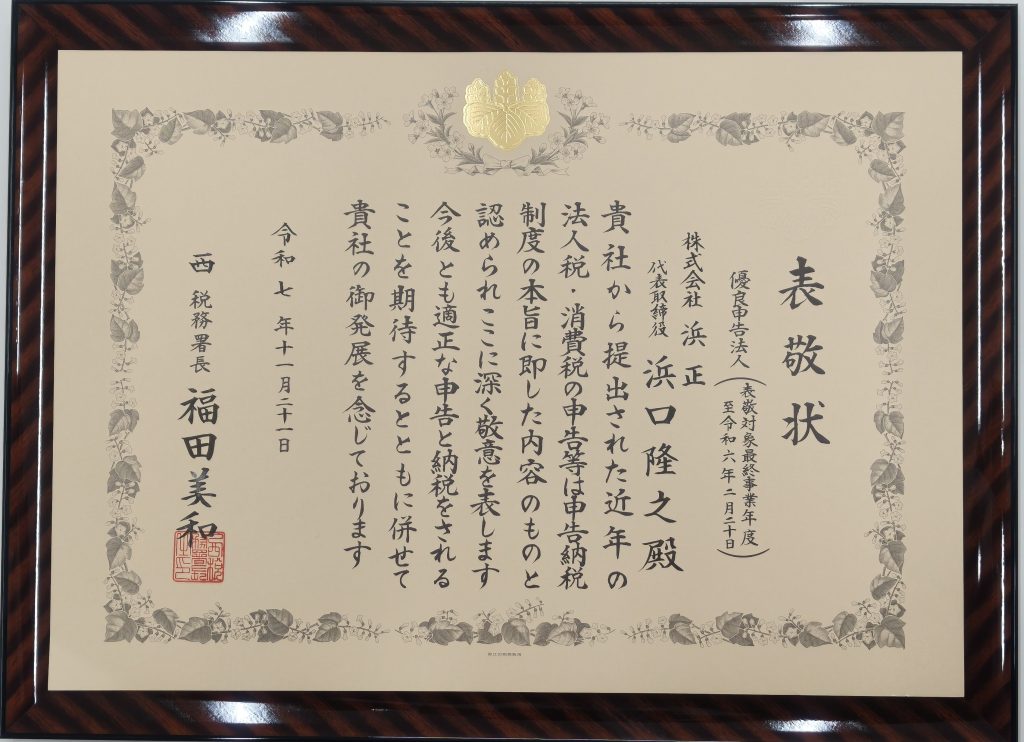 表敬状
優良申告法人
（表敬対象最終事業年度
至令和六年二月二十日）
株式会社 浜正
代表取締役 浜口隆之殿
貴社から提出された近年の
法人税・消費税の申告等は申告納税
制度の本旨に即した内容のものと
認められここに深く敬意を表します
今後とも適正な申告と納税をされる
ことを期待するとともに併せて
貴社の御発展を念じております
令和七年十一月二十一日
西税務署長 福田美和